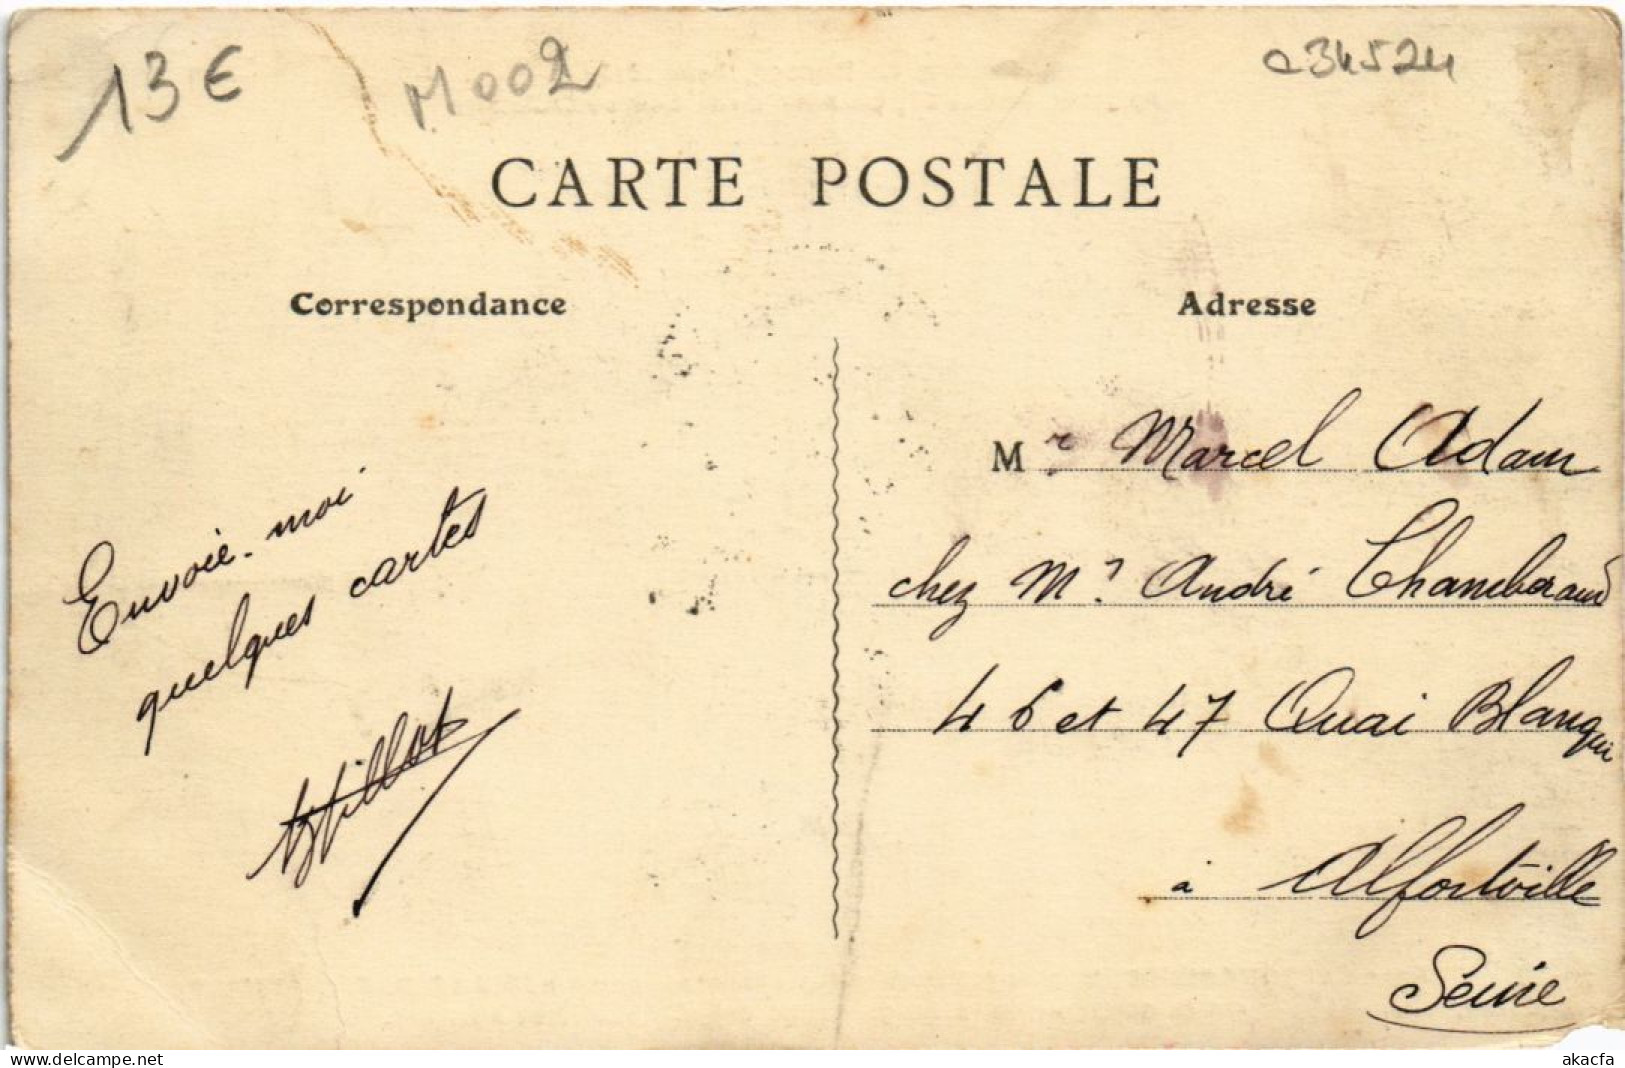 13€
M002
c34524
CARTE POSTALE
Correspondance
Adresse
Mr Marcel Adam
chez Mr André Chamberaud
46 et 47 Quai Blanqui
à Alfortville
Seine
Envoie-moi
quelques cartes
delcampe.net
akacfa